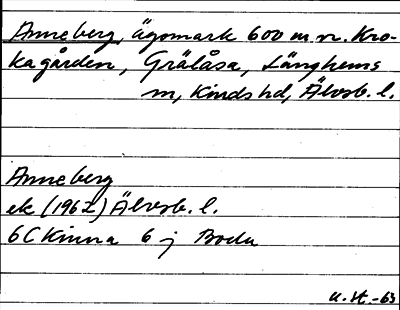 Anneberg, ägomark 600 m n. Kro-
kagården, Grälåsa, Länghems
sn, Kinds hd, Älvsb. l.
Anneberg
ek (1962) Älvsb. l.
6C Kinna 6 j Boda
U. H. -63